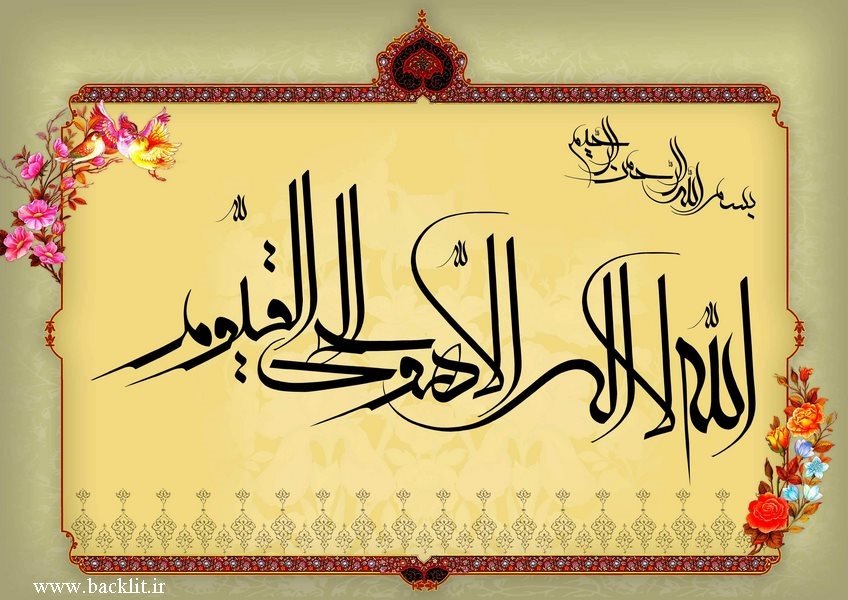 بسم الله الرحمن الرحیم
الله لا اله الا هو الحی القیوم
www.backlit.ir